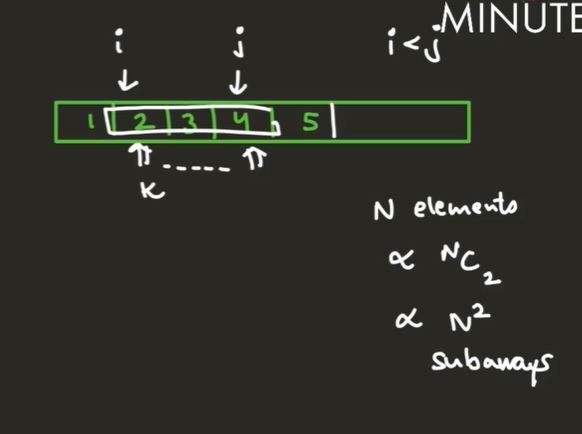 MINUTE
i j i < j
1 2 3 4 5
K
N elements
∝ ᴺC₂
∝ N²
subarrays